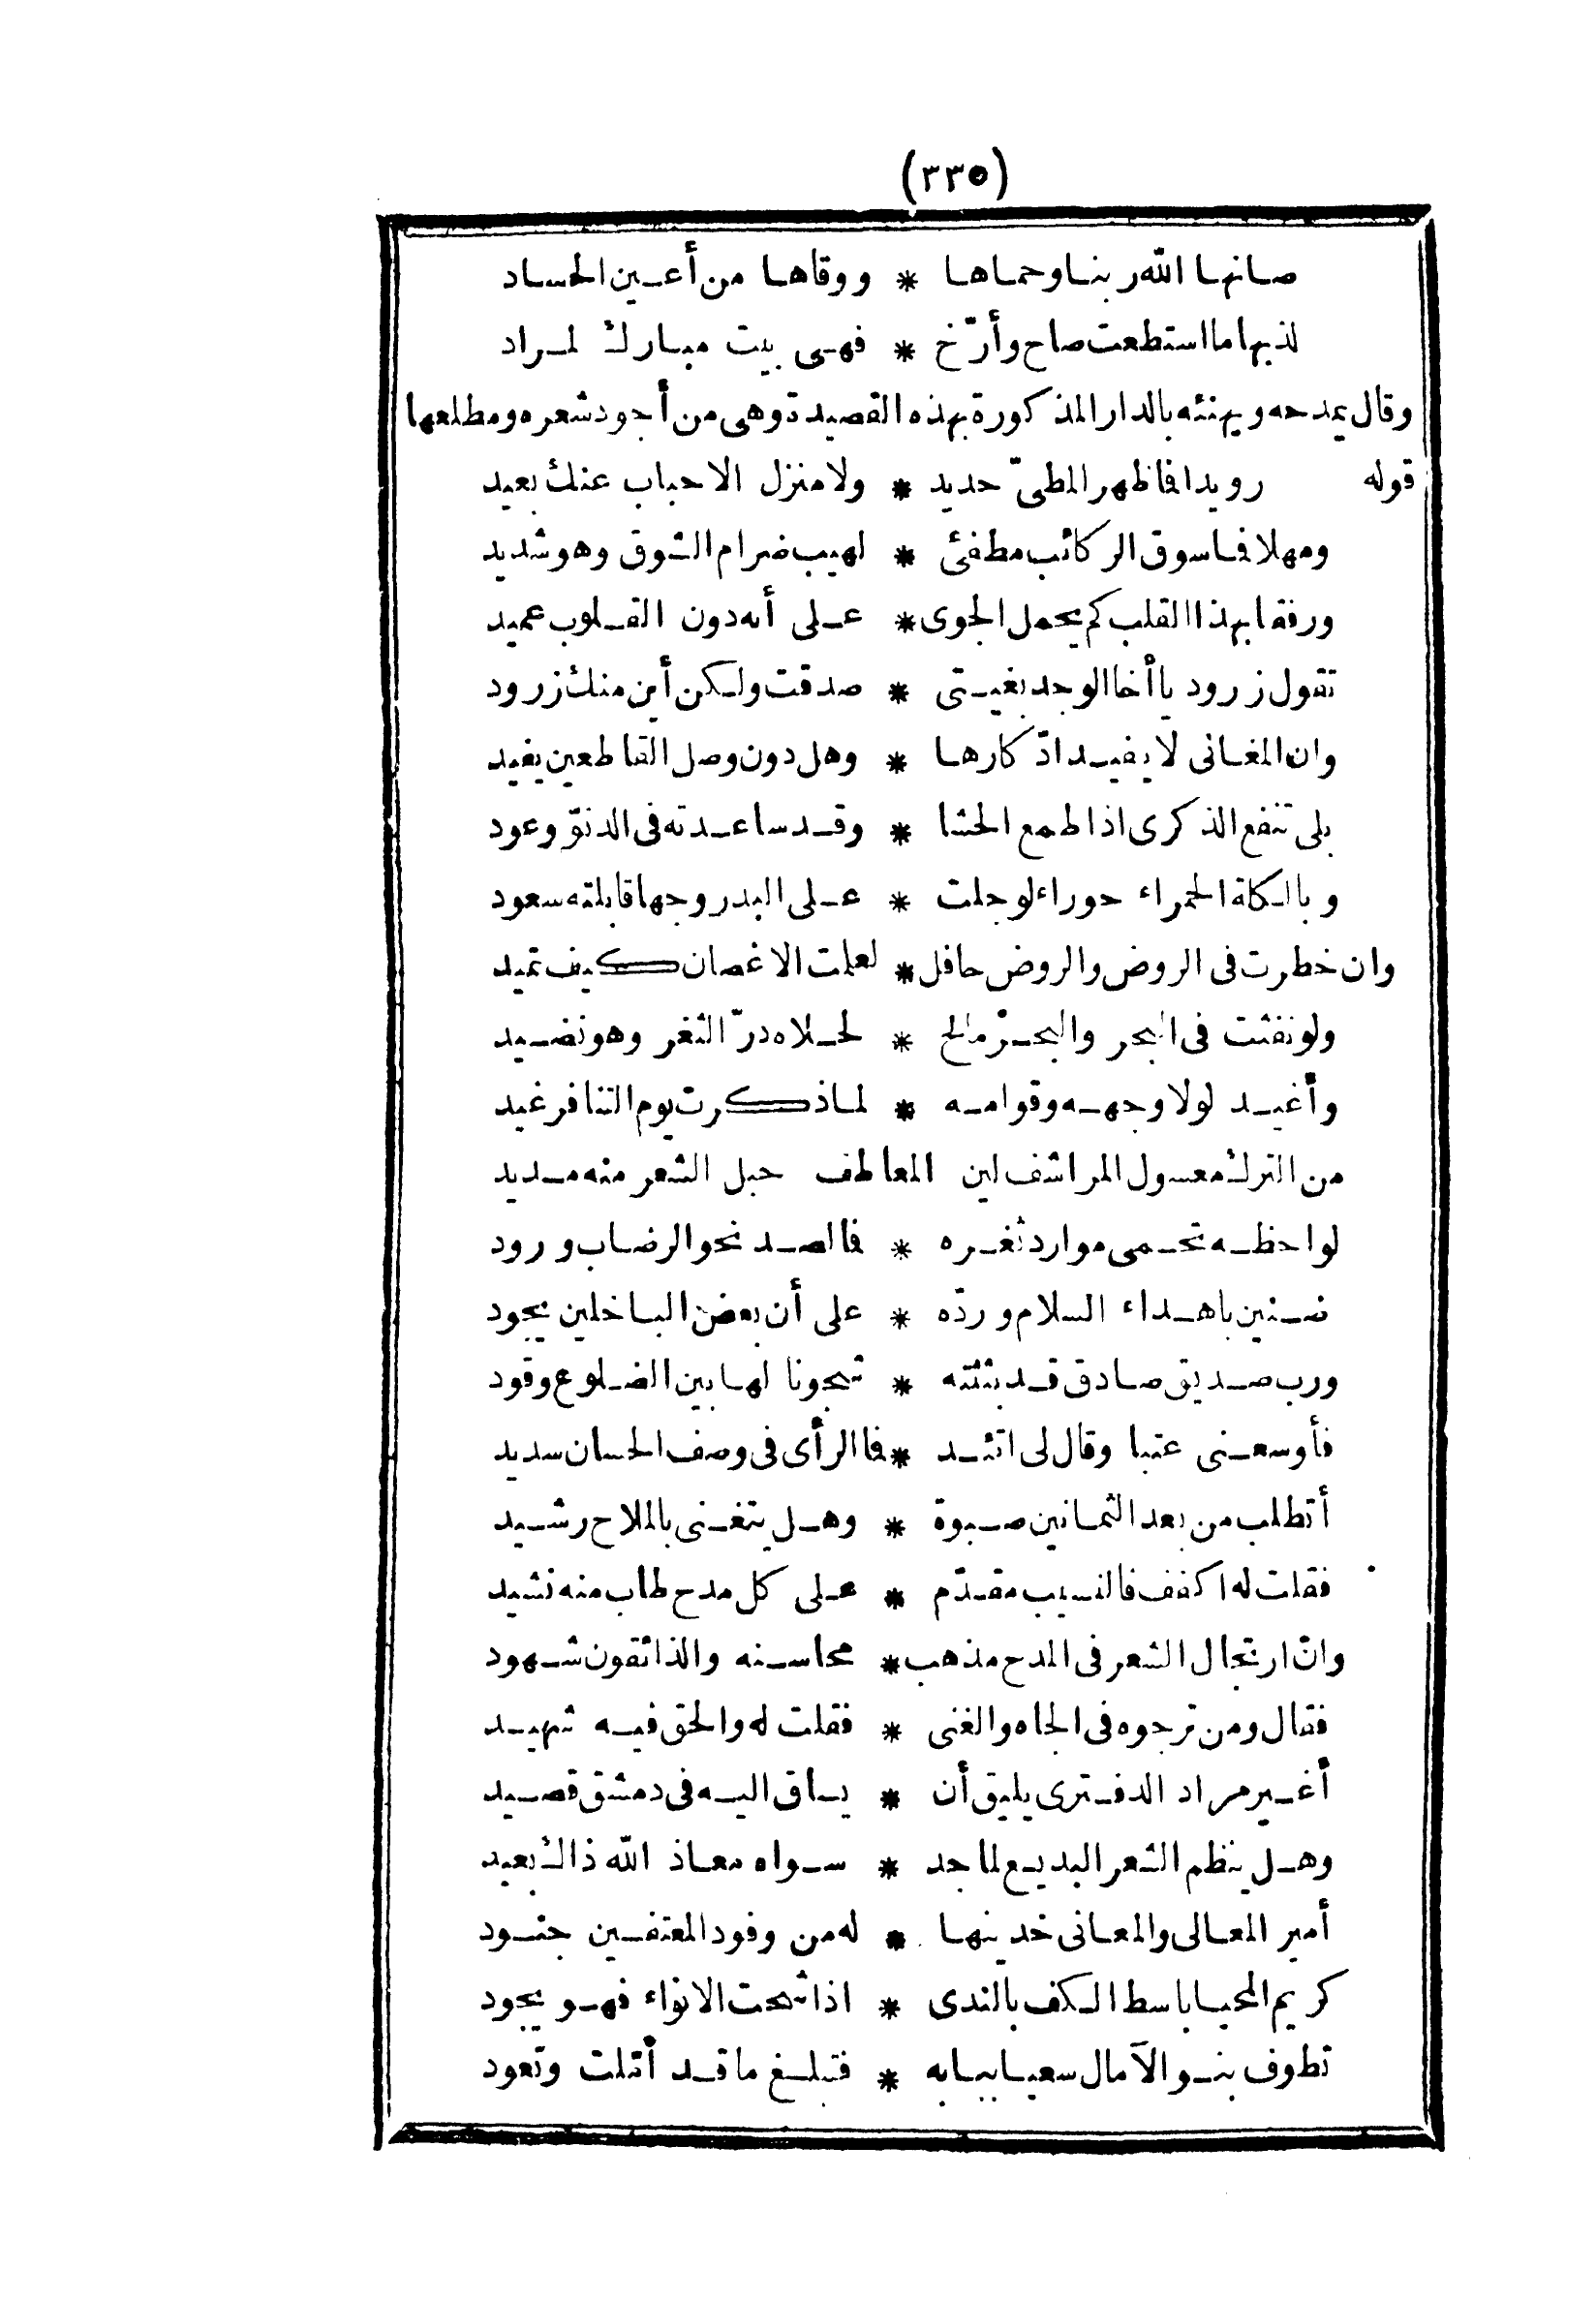 (٣٣٥)
صانها الله ربنا وحماها * ووقاها من أعين الحساد
لذ بها ما استطعت صاح وأرّخ * فهى بيت مبارك لمراد
وقال يمدحه ويهنئه بالدار المذكورة بهذه القصيدة وهى من أجود شعره ومطلعها
قوله رويدا فما ظهر المطىّ حديد * ولا منزل الاحباب عنك بعيد
ومهلا فما سوق الركائب مطفئ * لهيب ضرام الشوق وهو شديد
ورفقا بهذا القلب كم يحمل الجوى * على أنه دون القلوب عميد
تقول زرود يا أخا الوجد بغيتى * صدقت ولكن أين منك زرود
وان المغانى لا يفيد ادّكارها * وهل دون وصل القاطعين يفيد
بلى تنفع الذكرى اذا طمع الحشا * وقد ساعدته فى الدنوّ وعود
وبالكلة الحمراء حوراء لو جلت * على البدر وجها قابلته سعود
وان خطرت فى الروض والروض حافل * لعلمت الاغصان كيف تميد
ولو نفثت فى البحر والبحر مالح * لحلاه درّ الثغر وهو نضيد
وأغيد لولا وجهه وقوامه * لما ذكرت يوم التنافر غيد
من الترك معسول المراشف لين المعاطف حبل الشعر منه مديد
لواحظه تحمى موارد ثغره * فما لصد نحو الرضاب ورود
ضنين باهداء السلام وردّه * على أن بعض الباخلين يجود
ورب صديق صادق قد بثثته * شجونا لها بين الضلوع وقود
فأوسعنى عتبا وقال لى اتئد * فما الرأى فى وصف الحسان سديد
أتطلب من بعد الثمانين صبوة * وهل يتغنى بالملاح رشيد
فقلت له اكفف فالنسيب مقدّم * على كل مدح طاب منه نشيد
وانّ ارتجال الشعر فى المدح مذهب * محاسنه والذائقون شهود
فقال ومن ترجوه فى الجاه والغنى * فقلت له والحق فيه شهيد
أغير مراد الدفترى يليق أن * يساق اليه فى دمشق قصيد
وهل ينظم الشعر البديع لماجد * سواه معاذ الله ذاك بعيد
أمير المعالى والمعانى خدينها * له من وفود المعتفين جنود
كريم المحيا باسط الكف بالندى * اذا شحت الانواء فهو يجود
تطوف بنو الآمال سعيا ببابه * فتبلغ ما قد أمّلت وتعود